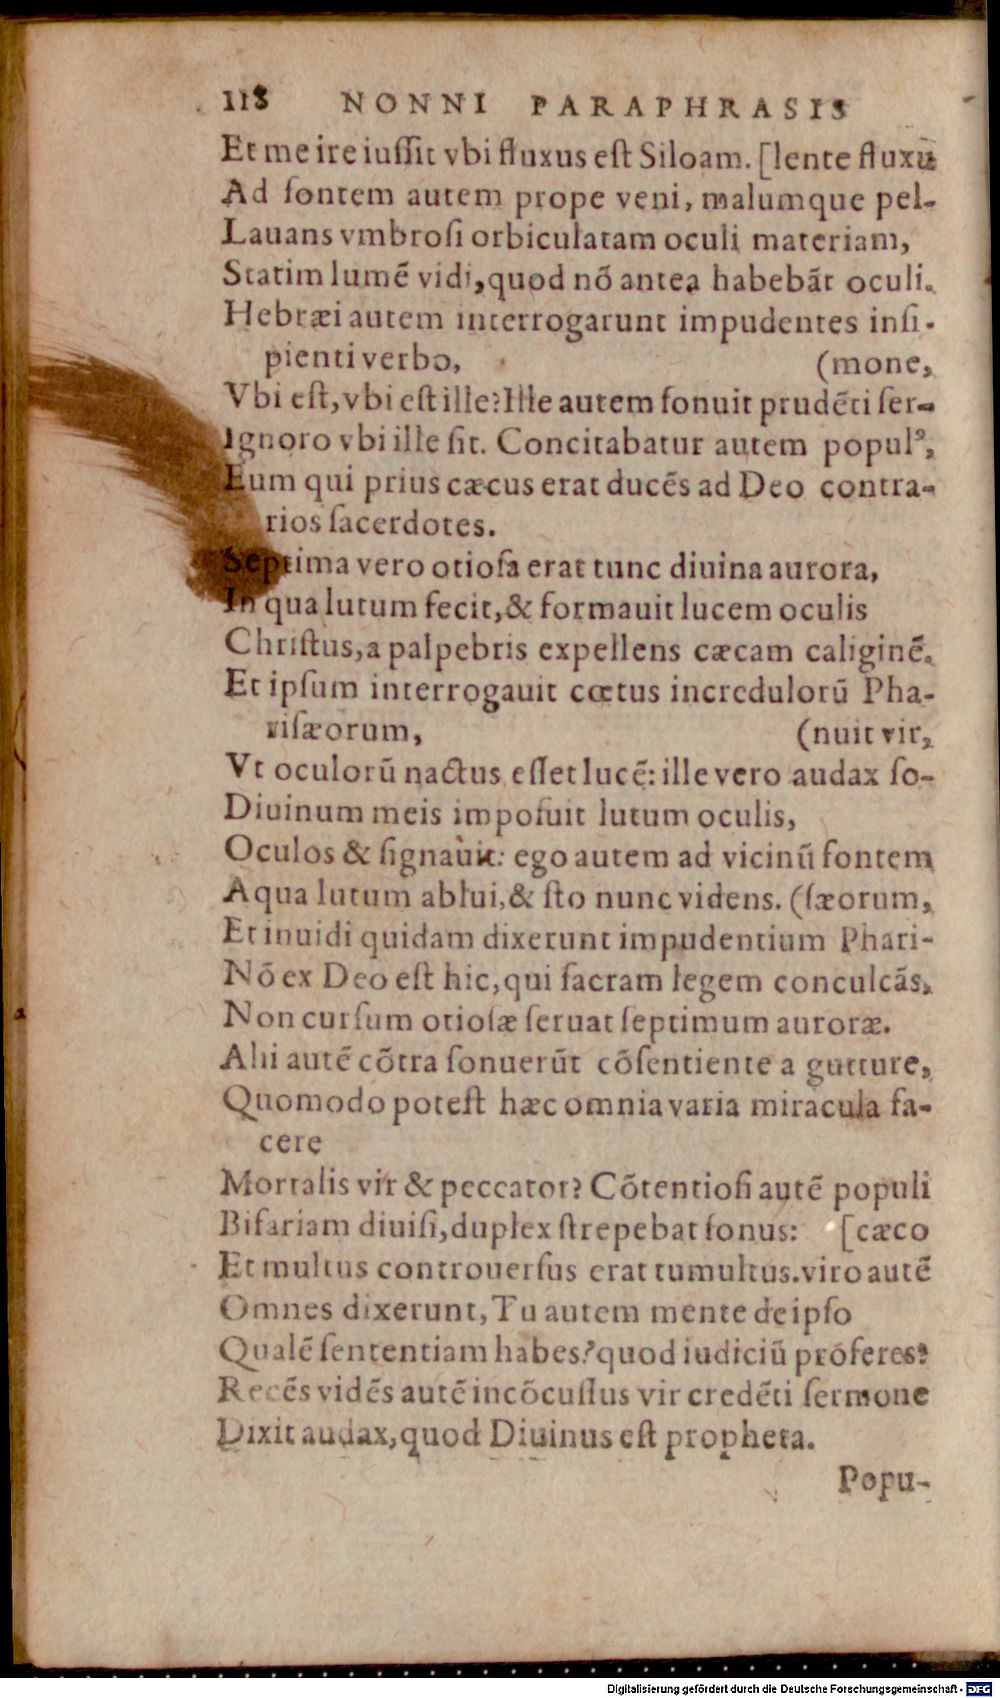 118 NONNI PARAPHRASIS
Et me ire iussit vbi fluxus est Siloam. [lente fluxū
Ad fontem autem prope veni, malumque pel-
Lauans vmbrosi orbiculatam oculi materiam,
Statim lumē vidi, quod nō antea habebāt oculi.
Hebræi autem interrogarunt impudentes insi-
pienti verbo, (mone,
Vbi est, vbi est ille? Ille autem sonuit prudēti ser-
Ignoro vbi ille sit. Concitabatur autem populꝰ,
Eum qui prius cæcus erat ducēs ad Deo contra-
rios sacerdotes.
Septima vero otiosa erat tunc diuina aurora,
In qua lutum fecit, & formauit lucem oculis
Christus, a palpebris expellens cæcam caliginē.
Et ipsum interrogauit cœtus incredulorū Pha-
risæorum, (nuit vir,
Vt oculorū nactus esset lucē: ille vero audax so-
Diuinum meis imposuit lutum oculis,
Oculos & signauit: ego autem ad vicinū fontem
Aqua lutum ablui, & sto nunc videns. (sæorum,
Et inuidi quidam dixerunt impudentium Phari-
Nō ex Deo est hic, qui sacram legem conculcās,
Non cursum otiosæ seruat septimum auroræ.
Alii autē cōtra sonuerūt cōsentiente a gutture,
Quomodo potest hæc omnia varia miracula fa-
cere
Mortalis vir & peccator? Cōtentiosi autē populi
Bifariam diuisi, duplex strepebat sonus: [cæco
Et multus controuersus erat tumultus. viro autē
Omnes dixerunt, Tu autem mente de ipso
Qualē sententiam habes? quod iudiciū proferes?
Recēs vidēs autē incōcussus vir credēti sermone
Dixit audax, quod Diuinus est propheta.
Popu-
Digitalisierung gefördert durch die Deutsche Forschungsgemeinschaft - DFG